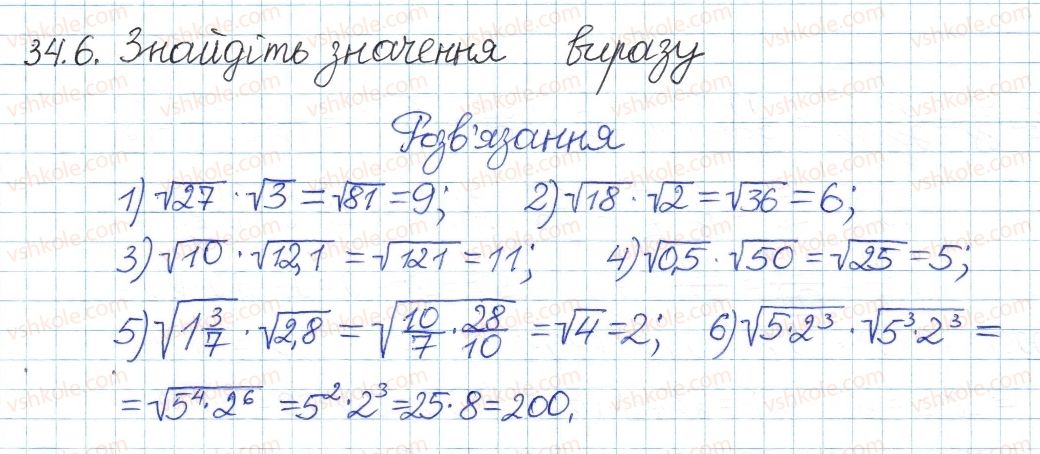 34.6. Знайдіть значення виразу
Розв'язання
1) √27 · √3 = √81 = 9; 2) √18 · √2 = √36 = 6;
3) √10 · √12,1 = √121 = 11; 4) √0,5 · √50 = √25 = 5;
5) √(1 3/7) · √2,8 = √(10/7 · 28/10) = √4 = 2; 6) √(5·2³) · √(5³·2³) =
= √(5⁴·2⁶) = 5²·2³ = 25·8 = 200.